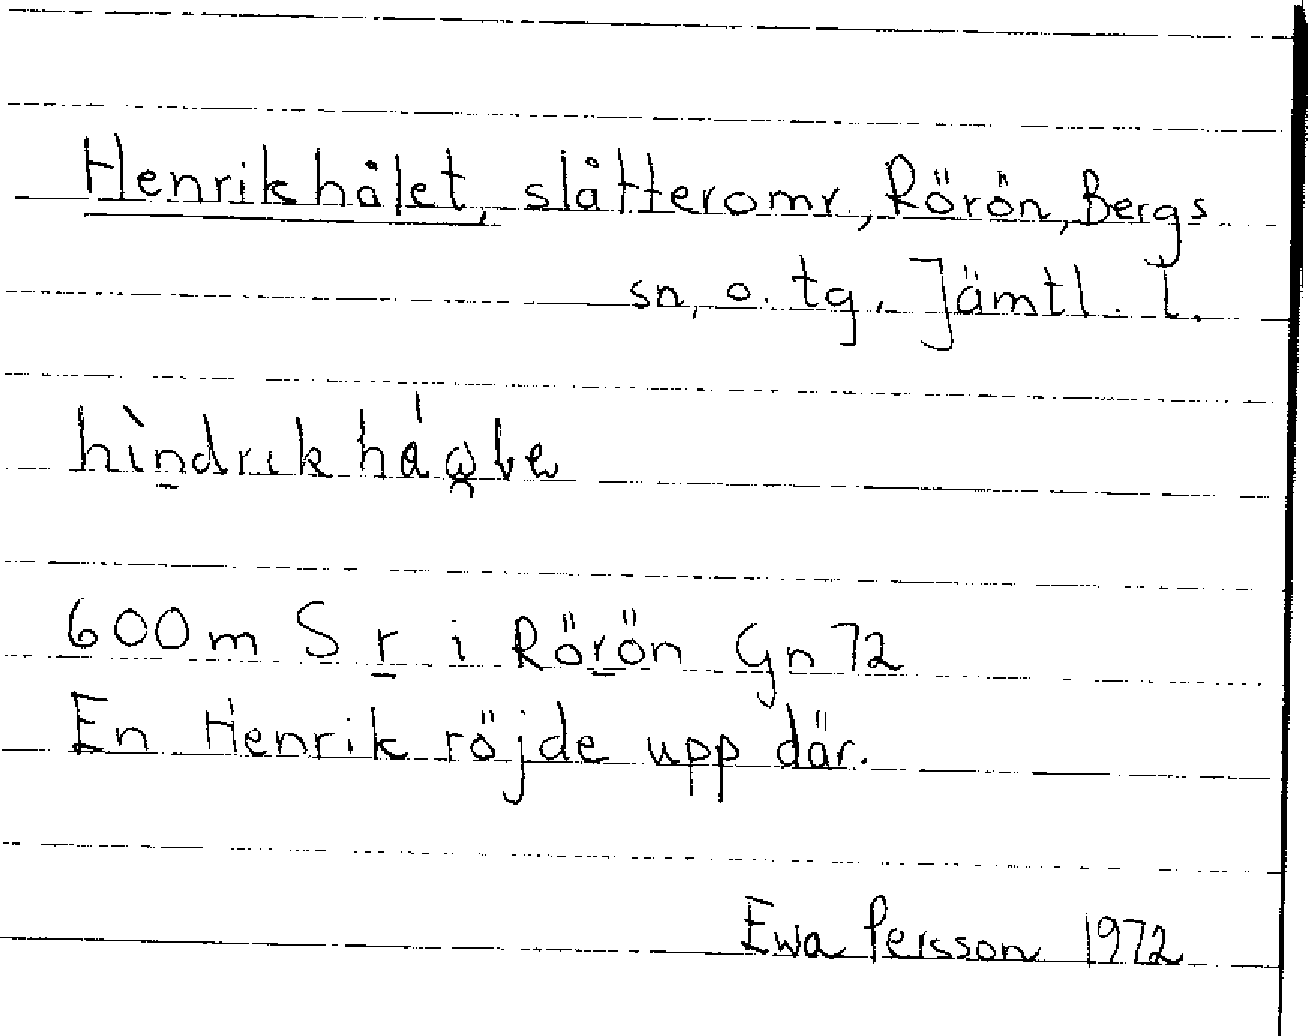 Henrikhålet, slåtteromr, Rörön, Bergs
sn. o. tg. Jämtl. l.
600 m S r i Rörön Gn 72
En Henrik röjde upp där.
Ewa Persson 1972